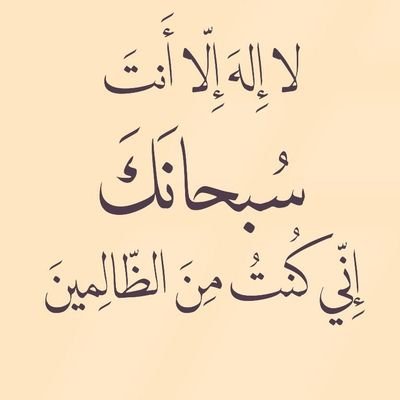 لا إِلهَ إِلّا أَنتَ
سُبحانَكَ
إِنّي كُنتُ مِنَ الظّالِمينَ